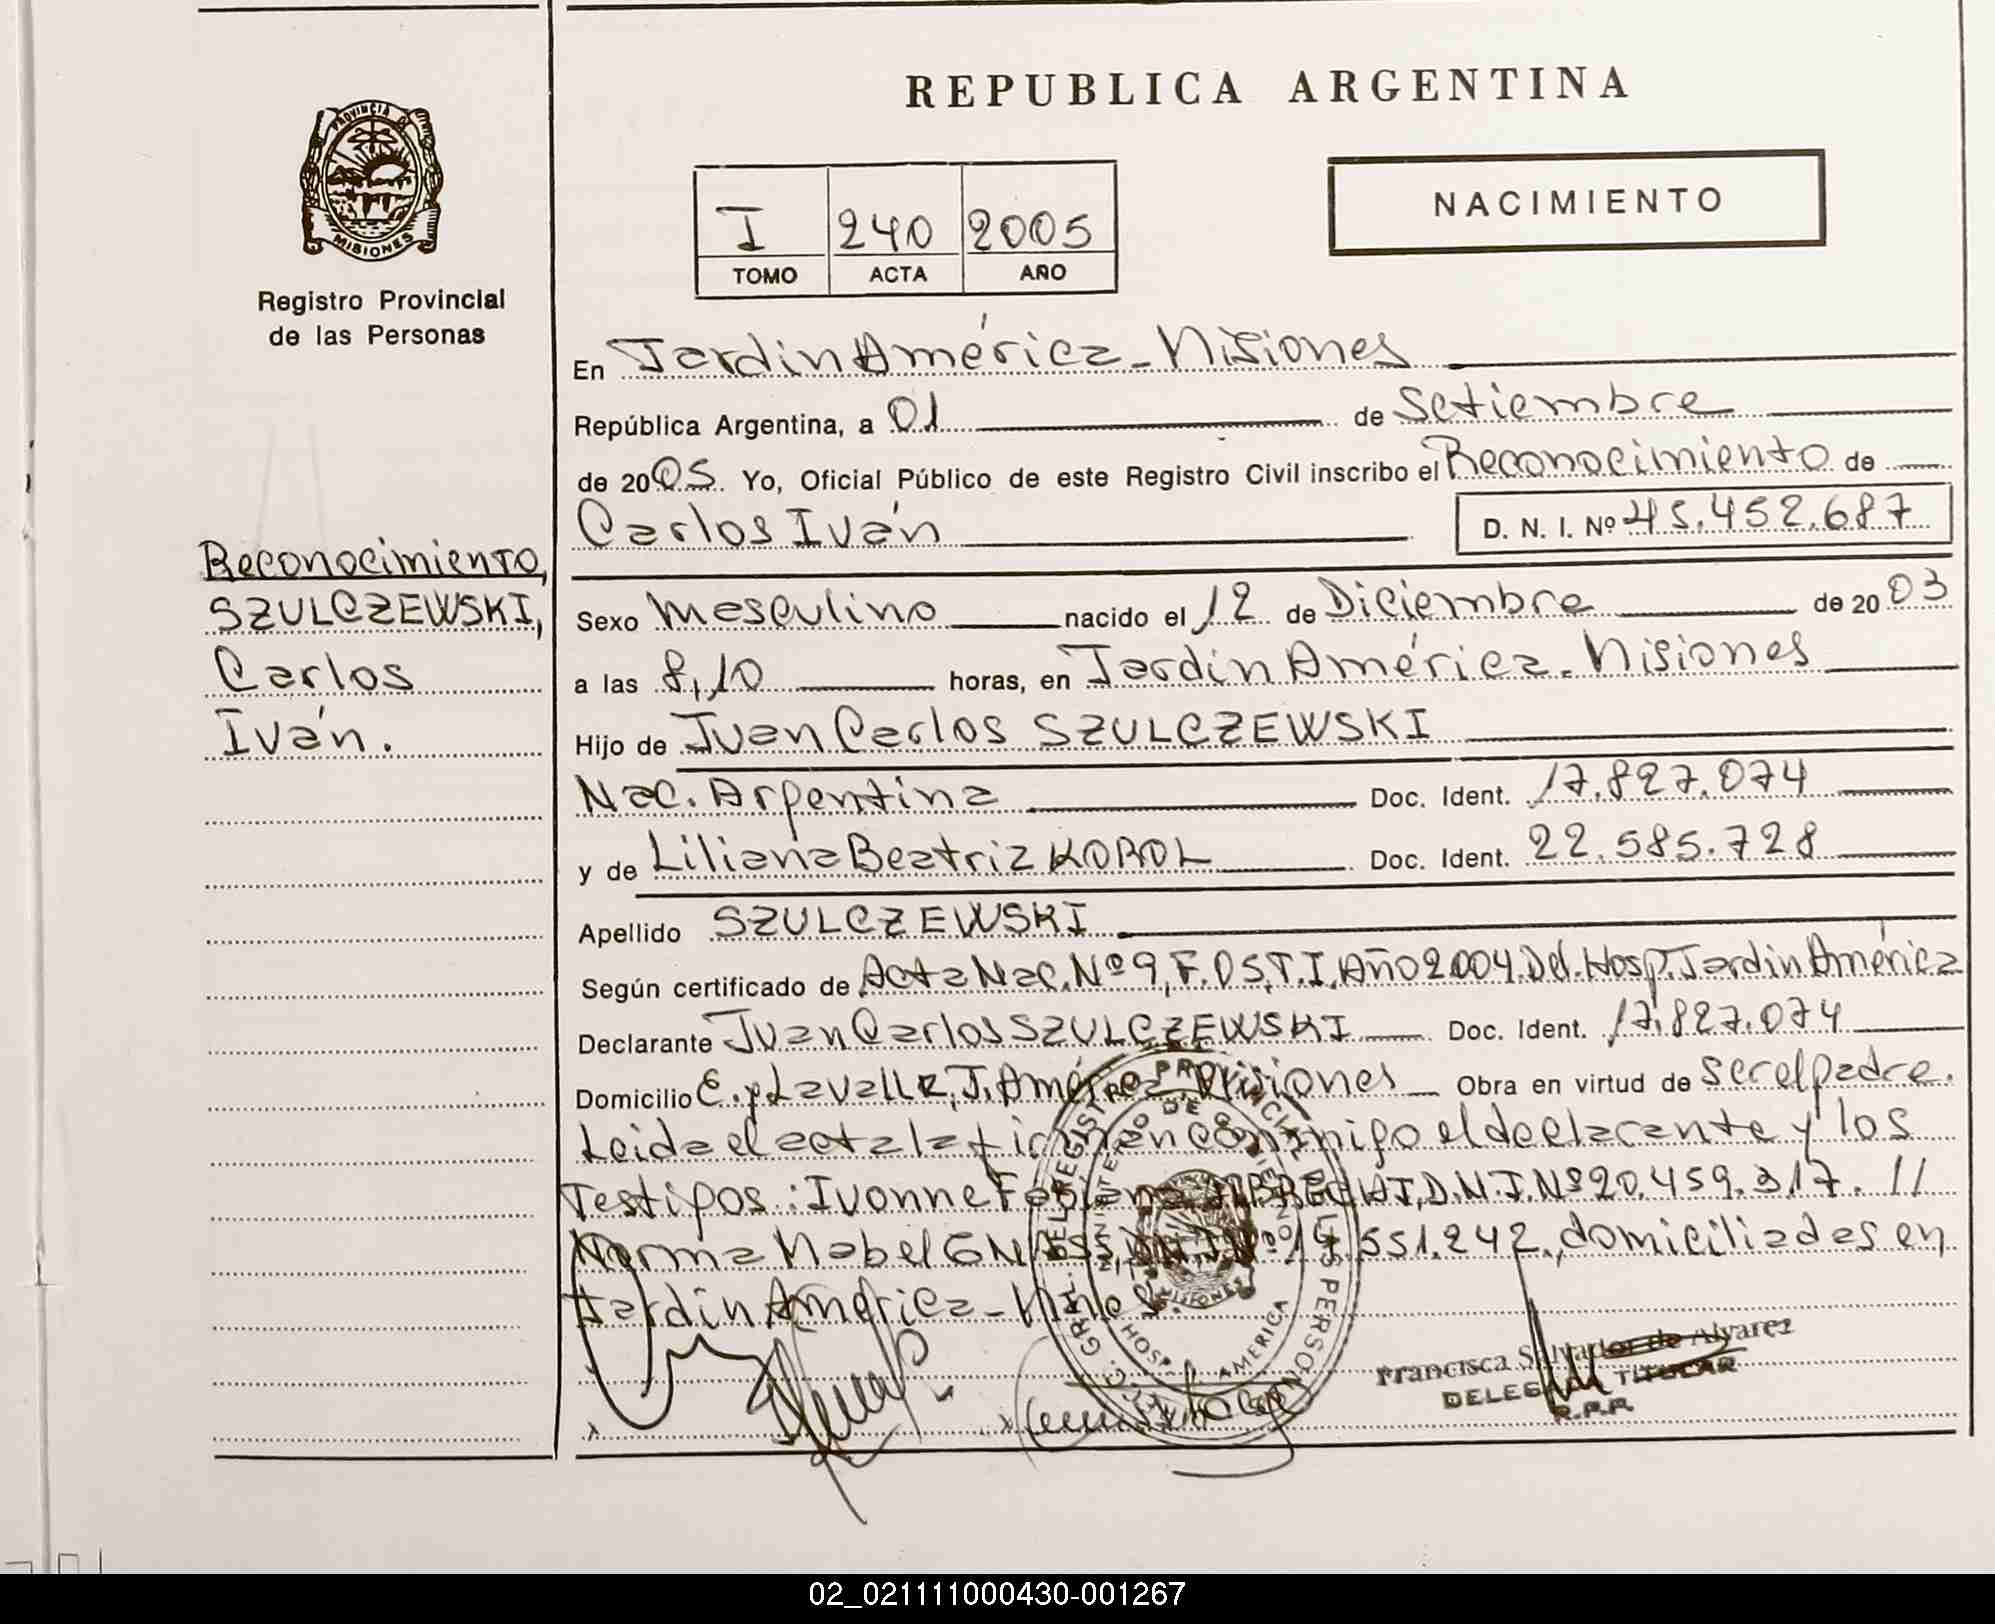 REPUBLICA ARGENTINA
PROVINCIA DE MISIONES
Registro Provincial
de las Personas
I 240 2005
TOMO ACTA AÑO
NACIMIENTO
En Jardin América - Misiones
República Argentina, a 01 de Setiembre
de 2005 Yo, Oficial Público de este Registro Civil inscribo el Reconocimiento de
Carlos Iván D. N. I. Nº 45.452.687
Reconocimiento,
SZULCZEWSKI,
Carlos
Iván.
Sexo Masculino nacido el 12 de Diciembre de 2003
a las 8,10 horas, en Jardin América - Misiones
Hijo de Juan Carlos SZULCZEWSKI
Nac. Argentina Doc. Ident. 17.827.074
y de Liliana Beatriz KOROL Doc. Ident. 22.585.728
Apellido SZULCZEWSKI
Según certificado de Acta Nac. Nº 9, F. 05, T. I, Año 2004. Del. Hosp. Jardin América
Declarante Juan Carlos SZULCZEWSKI Doc. Ident. 17.827.074
Domicilio E. y Lavalle, J. América, Misiones Obra en virtud de ser el padre.
Leida el acta la firman conmigo el declarante y los
Testigos: Ivonne Fabiana D.N.I. Nº 20.459.317. //
Norma Mabel domiciliadas en
Jardin América - Mnes.
Francisca Salvador de Alvarez
DELEGADA TITULAR
R.P.P.
DEL REGISTRO PROVINCIAL DE LAS PERSONAS
MINISTERIO DE GOBIERNO
HOSP. J. AMERICA
MISIONES
02_021111000430-001267